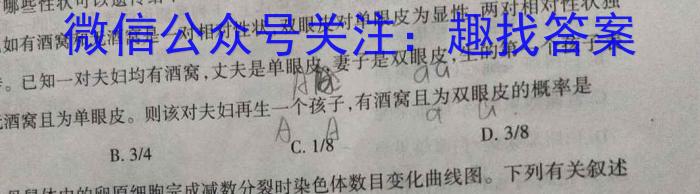 哪些性状可以遗传给
如有酒窝 对相对性状 双眼皮对单眼皮为显性,两对相对性状独
微信公众号关注:趣找答案
。已知一对夫妇均有酒窝,丈夫是单眼皮,妻子是双眼皮,生的第一个孩子
酒窝且为单眼皮。则该对夫妇再生一个孩子,有酒窝且为双眼皮的概率是
B. 3/4 C. 1/8 D. 3/8
A A a u
体内的卵原细胞完成减数分裂时染色体数目变化曲线图。下列有关叙述